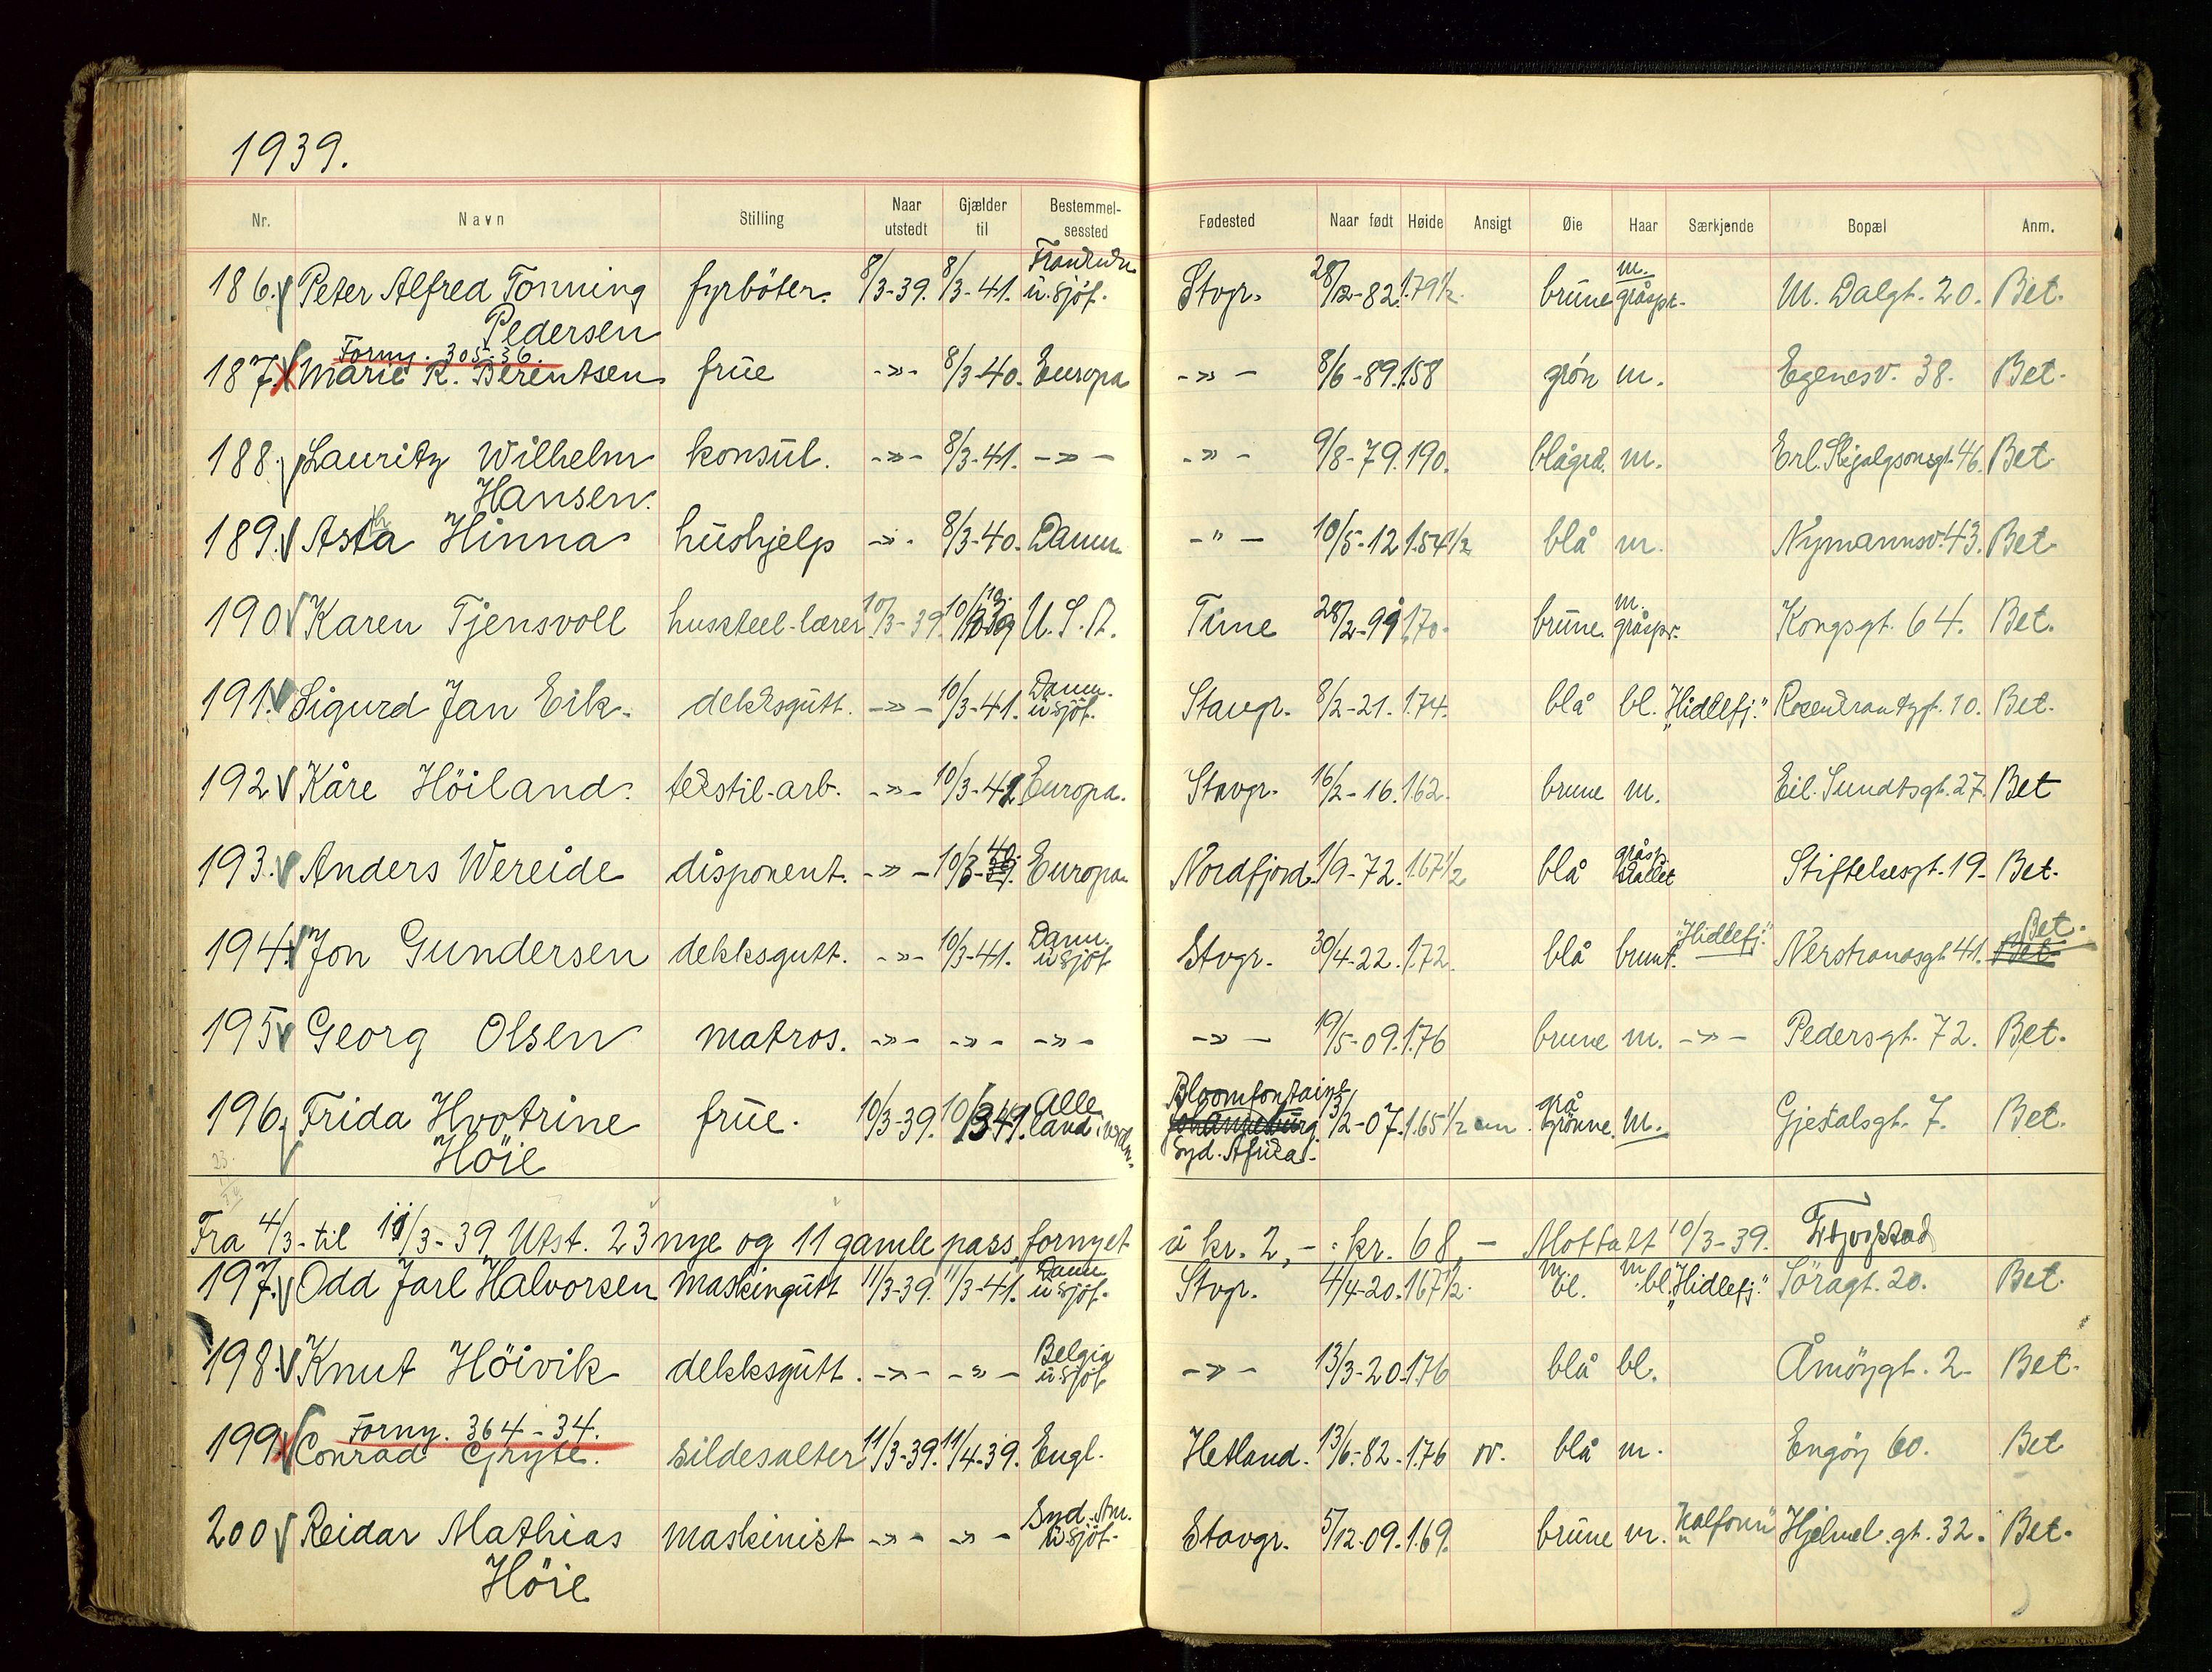 1939.
Nr. Navn Stilling Naar utstedt Gjælder til Bestemmelsessted Fødested Naar født Høide Ansigt Øie Haar Særkjende Bopæl Anm.
186. Peter Alfred Tonning Pedersen fyrböter. 8/3-39. 8/3-41. u.sjöf. Stvgr. 28/12-82. 1.79½. brune m. gråspr. M. Dalgt. 20. Bet.
Forny. 305-36.
187. Marie K. Berentsen frue -»- 8/3-40. Europa -»- 8/6-89. 1.58 grön m. Egenesv. 38. Bet.
188. Lauritz Wilhelm Hansen. konsul. -»- 8/3-41. -»- -»- 9/8-79. 1.90. blågrå. m. Erl. Skjalgsonsgt. 46. Bet.
189. Asta Hinna hushjelp -»- 8/3-40. Danm. -"- 10/5-12 1.54½ blå m. Nymannsv. 43. Bet.
190 Karen Tjensvoll husstell-lærer 10/3-39. U.S.A. Time 28/2-99 1.70. brune. m. gråspr. Kongsgt. 64. Bet.
191. Sigurd Jan Eik. dekksgutt. -»- 10/3-41. Danm. u.sjöf. Stavgr. 8/2-21. 1.74. blå bl. "Hidlefj." Rosenkrantzgt. 10. Bet.
192 Kåre Höiland. tekstil-arb. -»- 10/3-41. Europa. Stavgr. 16/2-16. 1.62. brune m. Eil. Sundtsgt. 27. Bet
193. Anders Wereide disponent. -»- 10/3-40. Europa Nordfjord. 1/9-72. 1.67½ blå gråspr. skallet Stiftelsesgt. 19. Bet.
194. Jon Gundersen dekksgutt. -»- 10/3-41. Danm. u.sjöf. Stvgr. 30/4-22. 1.72. blå brunt. "Hidlefj." Nerstrandsgt. 41. Bet. Bet.
195 Georg Olsen matros. -»- -»- -»- -»- 19/5-09. 1.76 brune m. -»- Pedersgt. 72. Bet.
196. Frida Hvotrine Höie frue. 10/3-39. 10/3-41. Alle land i verden. Bloomfontaine Syd. Afrika. 3/2-07. 1.65½ cm. grå grönne. m. Gjesdalsgt. 7. Bet.
23.
Fra 4/3-til 11/3-39 Utst. 23 nye og 11 gamle pass fornyet à kr. 2,- . kr. 68,- Mottatt 10/3-39.
197. Odd Jarl Halvorsen maskingutt 11/3-39. 11/3-41. Danm. u.sjöf. Stvgr. 4/4-20. 1.67½. m. bl. m. bl. "Hidlefj." Söragt. 20. Bet.
198. Knut Höivik dekksgutt. -»- -»- Belgia u.sjöf. -»- 13/3-20. 1.76 blå bl. Åmöygt. 2. Bet.
Forny. 364-34.
199. Conrad Gryte. sildesalter 11/3-39. 11/4-39. Engl. Hetland. 13/6-82. 1.76 ov. blå m. Engöy 60. Bet
200 Reidar Mathias Höie maskinist -»- -»- Syd. Am. u.sjöf. Stavgr. 5/12-09. 1.69. brune m. "Kalfonn" Hjelmel.gt. 32. Bet.